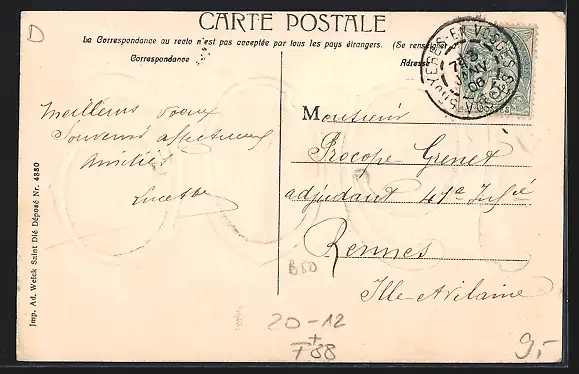 D
CARTE POSTALE
La Correspondance au recto n'est pas acceptée par tous les pays étrangers. (Se renseigner
Correspondance
Adresse
BRUYERES-EN-VOSGES
VOSGES
JANV
06
Meilleurs voeux
Souvenirs affectueux
Amitiés
Lucette
Monsieur
Procope Grenet
adjudant 41e Inf.ie
Rennes
Ille et Vilaine
Imp. Ad. Weick Saint Dié Déposé Nr. 4880
B50
20-12
+
T88
9,-